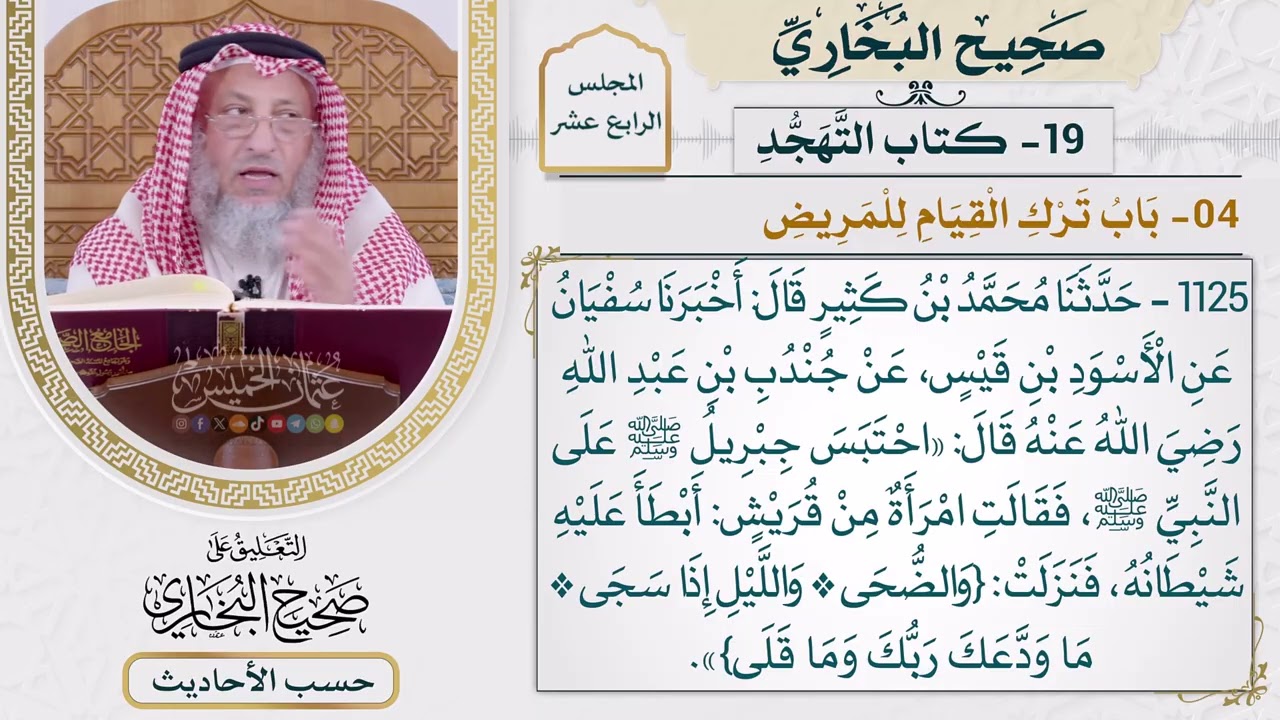 صَحِيح البُخَارِيِّ
المجلس
الرابع عشر
19- كتاب التَّهَجُّدِ
04- بَابُ تَرْكِ الْقِيَامِ لِلْمَرِيضِ
1125 - حَدَّثَنَا مُحَمَّدُ بْنُ كَثِيرٍ قَالَ: أَخْبَرَنَا سُفْيَانُ
عَنِ الْأَسْوَدِ بْنِ قَيْسٍ، عَنْ جُنْدُبِ بْنِ عَبْدِ اللهِ
رَضِيَ اللهُ عَنْهُ قَالَ: «احْتَبَسَ جِبْرِيلُ ﷺ عَلَى
النَّبِيِّ ﷺ، فَقَالَتِ امْرَأَةٌ مِنْ قُرَيْشٍ: أَبْطَأَ عَلَيْهِ
شَيْطَانُهُ، فَنَزَلَتْ: {وَالضُّحَى ❖ وَاللَّيْلِ إِذَا سَجَى ❖
مَا وَدَّعَكَ رَبُّكَ وَمَا قَلَى}».
عُثمان الخميس
التَّعْلِيقُ عَلَى
صَحِيحُ البُخَارِي
حسب الأحاديث